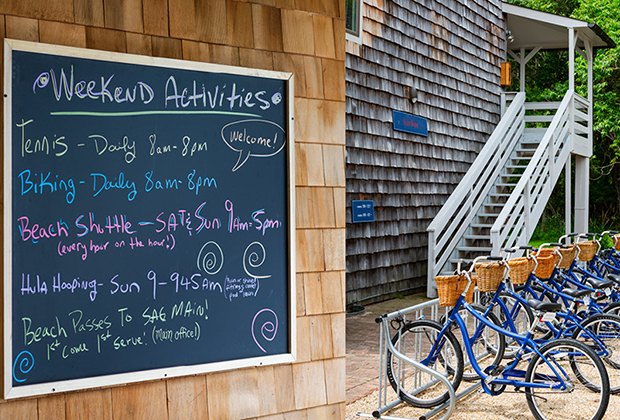 Weekend Activities
Tennis - Daily 8am-8pm
Welcome!
Biking - Daily 8am-8pm
Beach Shuttle - SAT & Sun 9am-5pm
(every hour on the hour!)
Hula Hooping - Sun 9-945am
Beach Passes To SAG MAIN!
1st come 1st serve! (main office!)